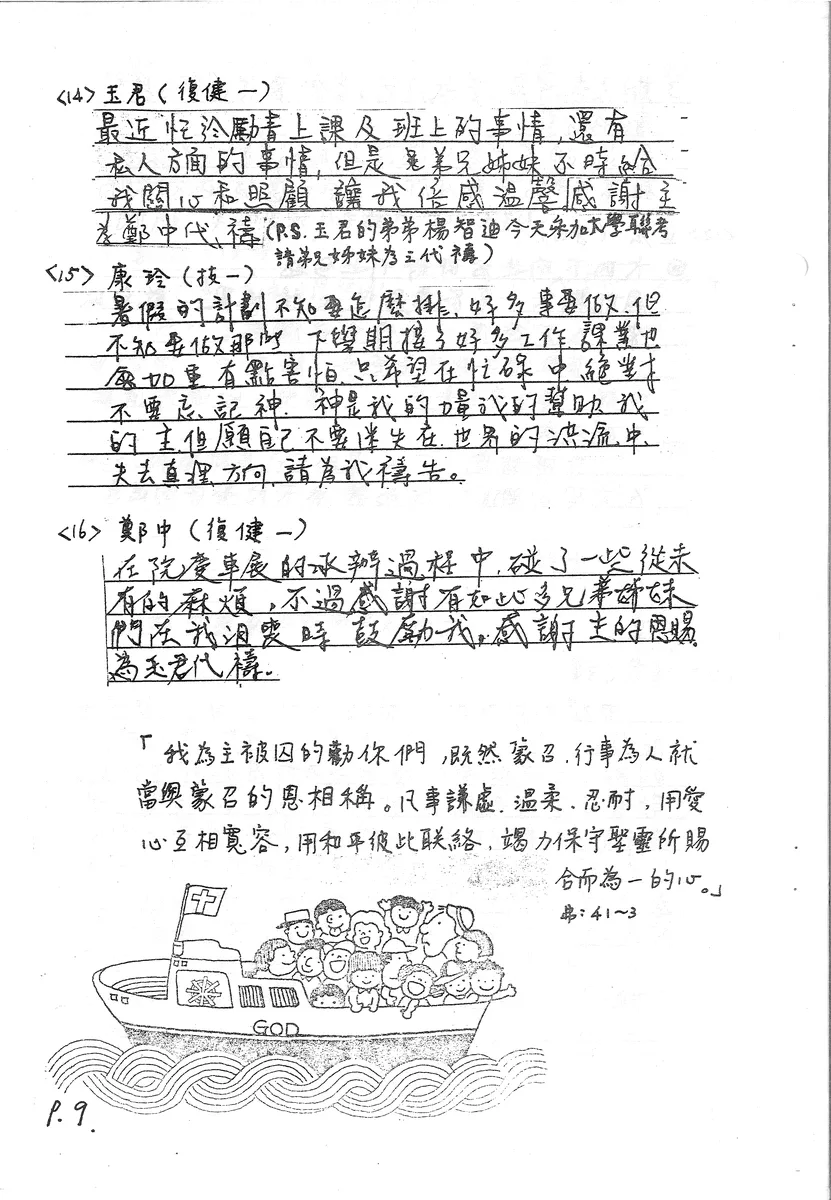 <14> 玉君(復健一)
最近忙於勵青上課及班上的事情,還有
私人方面的事情,但是弟兄姊妹不時給
我關心和照顧讓我倍感溫馨,感謝主
為鄭中代禱(P.S. 玉君的弟弟楊智迪今天參加大學聯考
請弟兄姊妹為之代禱)
<15> 康玲(技一)
暑假的計劃不知要怎麼排,好多事要做,但
不知要做那些,下學期接了好多工作,課業也
加重有點害怕,只希望在忙碌中絕對
不要忘記神.神是我的力量我的幫助我
的主但願自己不要迷失在世界的洪流中,
失去真理方向,請為我禱告。
<16> 鄭中(復健一)
在院慶車展的承辦過程中,碰了一些從未
有的麻煩,不過感謝有如此多兄弟姊妹
們在我沮喪時鼓勵我。感謝主的恩賜.
為玉君代禱。
「我為主被囚的勸你們,既然蒙召.行事為人就
當與蒙召的恩相稱。凡事謙虛.溫柔.忍耐,用愛
心互相寬容,用和平彼此联絡,竭力保守聖靈所賜
合而為一的心。」
弗:41~3
GOD
P.9.